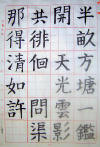 半畝方塘一鑑
開　天光雲影
共徘徊　問渠
那得清如許